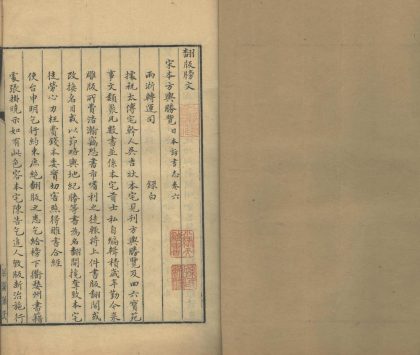 翻版牓文
宋本方輿勝覽日本訪書志卷六
兩浙轉運司 錄白
據祝太傅宅幹人吳吉狀本宅見刊方輿勝覽及四六寶苑
事文類聚凡數書並係本宅貢士私自編輯積歲辛勤今來
雕版所費浩瀚竊恐書市嗜利之徒輒將上件書版翻開或
改換名目或以節略輿地紀勝等書為名翻開攙奪致本宅
徒勞心力枉費錢本委實切害照得雕書合經
使臺申明乞行約束庶絕翻版之患乞給榜下衢婺州雕書籍
處張掛曉示如有此色容本宅陳告乞追人毀版斷治施行